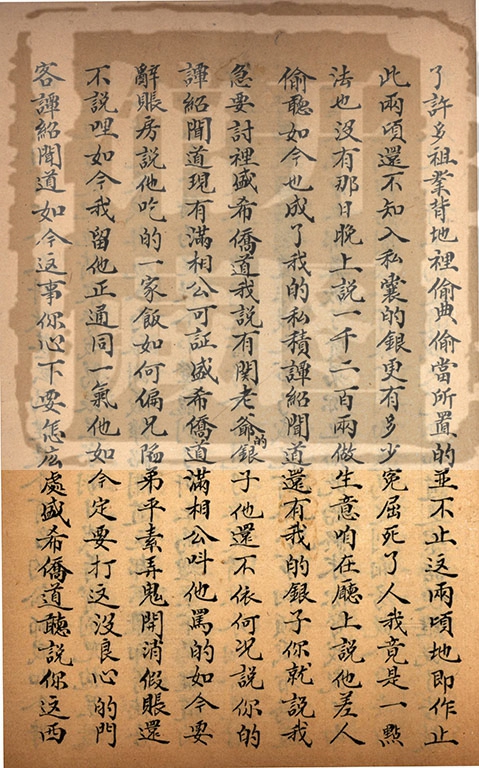 了許多祖業背地裡偷典偷當所置的並不止这兩頃地即作止
此兩頃還不知入私囊的銀更有多少寃屈死了人我竟是一點
法也没有那日晚上說一千二百兩做生意咱在廳上說他差人
偷聽如今也成了我的私積譚紹聞道還有我的銀子你就說我
急要討裡盛希僑道我說有関老爺的銀子他還不依何况說你的
譚紹聞道現有滿相公可証盛希僑道滿相公呌他罵的如今要
辭賬房說他吃的一家飯如何偏兄陷弟平素弄鬼開消假賬還
不說哩如今我留他正通同一氣他如今定要打这没良心的門
客譚紹聞道如今这事你心下要怎庅處盛希僑道聽說你这西